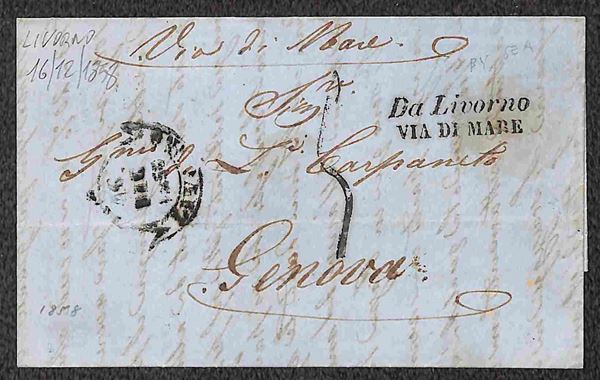 LIVORNO
16/12/1858
Via di Mare.
BY SEA
Da Livorno
VIA DI MARE
Sig.r
L. Carpaneto
Genova
1858